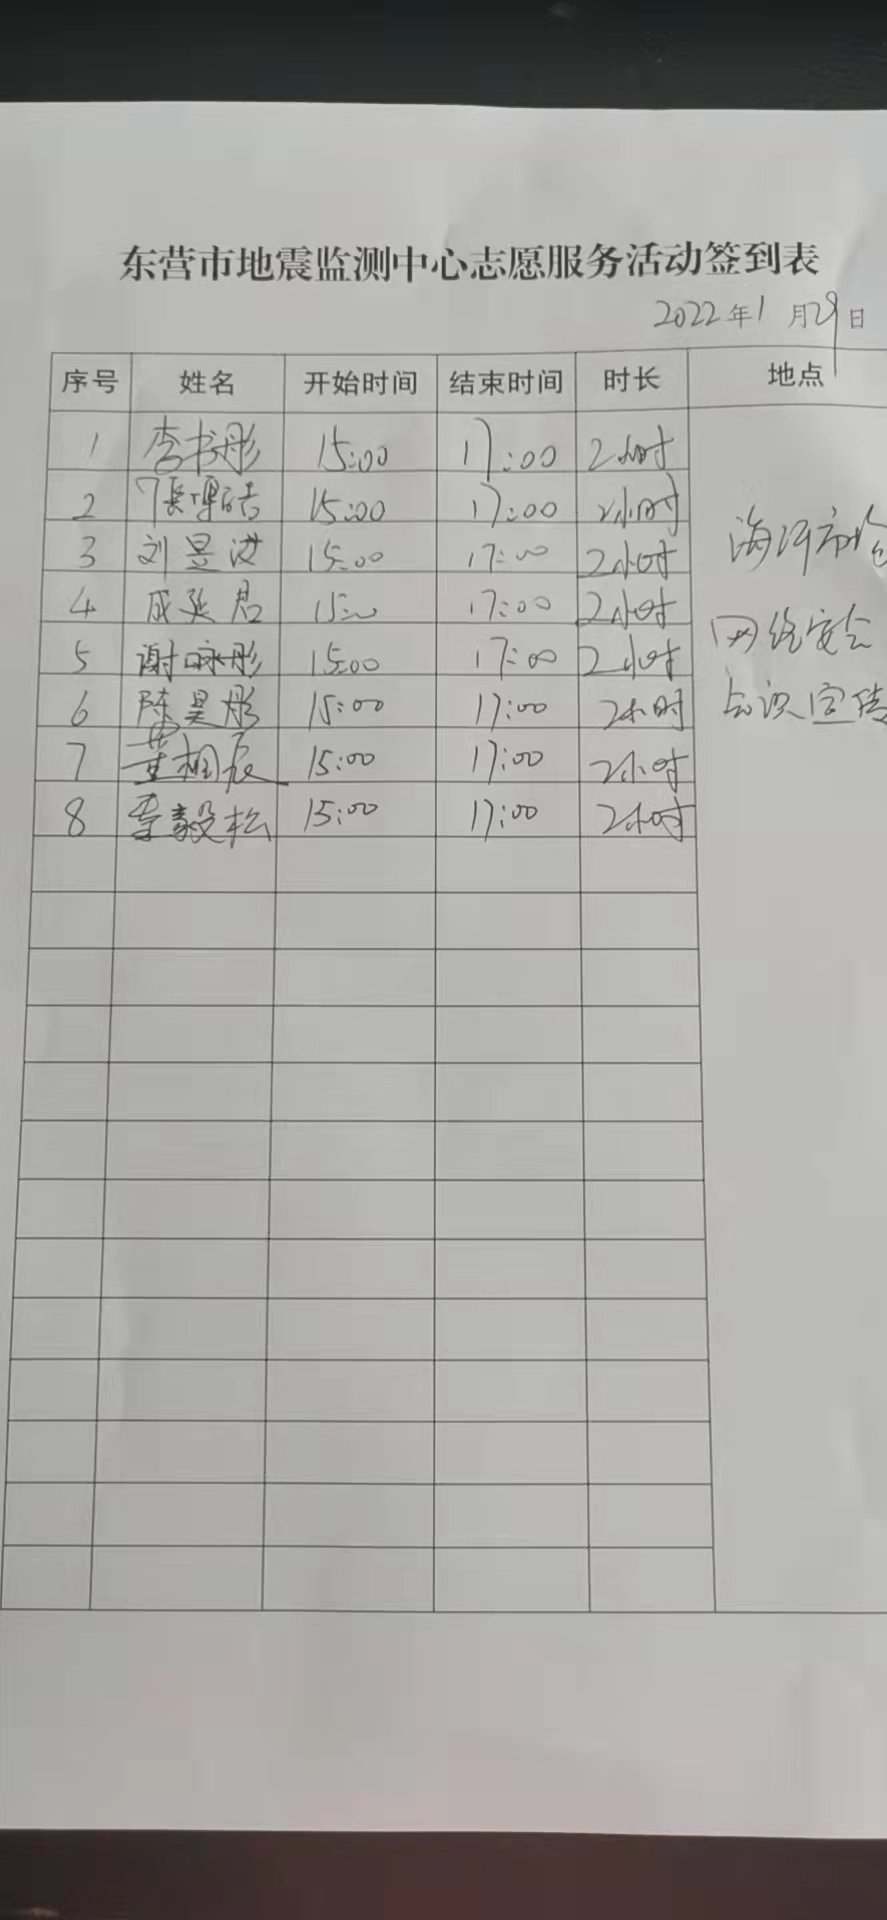 东营市地震监测中心志愿服务活动签到表
2022年1月29日
序号 姓名 开始时间 结束时间 时长 地点
1 李书彤 15:00 17:00 2小时
2 15:00 17:00 2小时
3 刘昱洪 15:00 17:00 2小时
4 成延君 15:00 17:00 2小时
5 谢咏彤 15:00 17:00 2小时
6 陈昊彤 15:00 17:00 2小时
7 董相辰 15:00 17:00 2小时
8 季毅松 15:00 17:00 2小时
海河市
网络安全
知识宣传